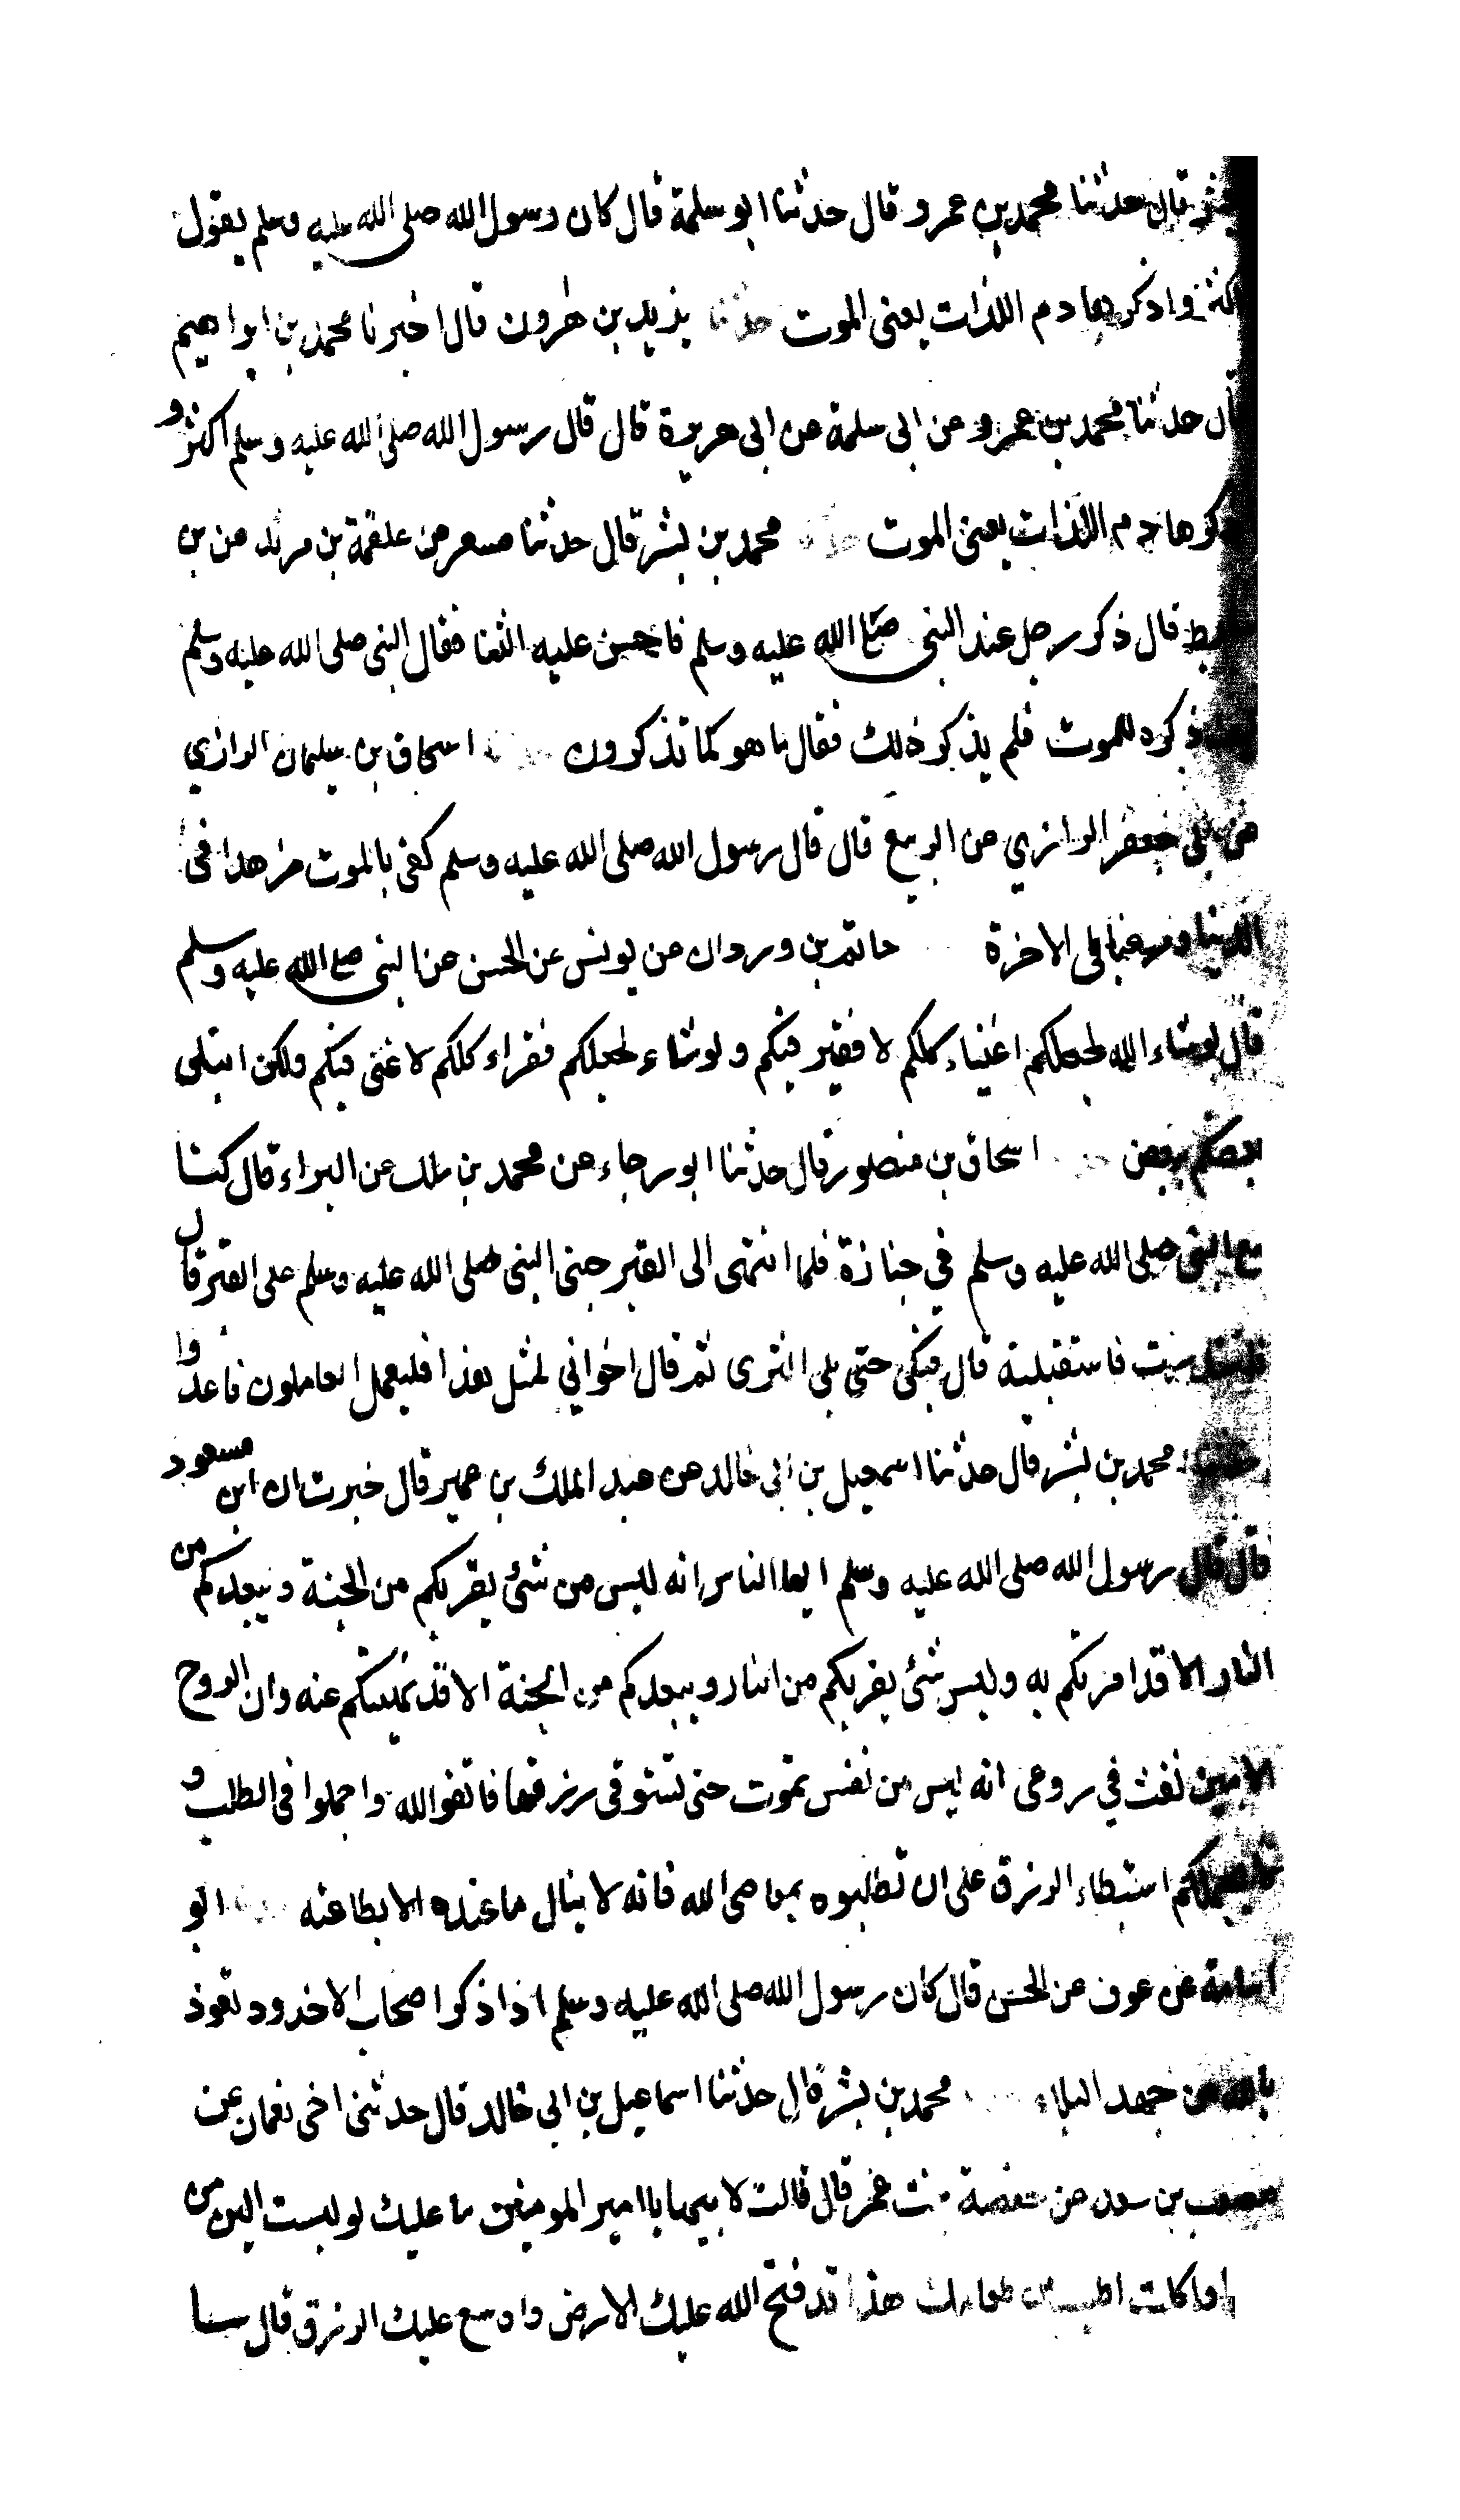 بشر قال حدثنا محمد بن عمرو قال حدثنا ابو سلمة قال كان رسول الله صلى الله عليه وسلم يقول
اكثروا ذكر هادم اللذات يعنى الموت حدثنا يزيد بن هرون قال اخبرنا محمد بن ابراهيم
قال حدثنا محمد بن عمرو عن ابى سلمة عن ابى هريرة قال قال رسول الله صلى الله عليه وسلم اكثروا
ذكر هادم اللذات يعنى الموت حدثنا محمد بن بشر قال حدثنا مسعر عن علقمة بن مرثد عن بن
سابط قال ذكر رجل عند النبى صلى الله عليه وسلم فاحسن عليه الثنا فقال النبى صلى الله عليه وسلم
ذكره للموت فلم يذكر ذلك فقال ما هو كما تذكرون حدثنا اسحاق بن سليمان الرازي
عن ابى جعفر الرازي عن الربيع قال قال رسول الله صلى الله عليه وسلم كفى بالموت مزهدا فى
الدنيا ومرغبا فى الاخرة حاتم بن وردان عن يونس عن الحسن عن النبى صلى الله عليه وسلم
قال لو شاء الله لجعلكم اغنياء كلكم لا فقير فيكم ولو شاء لجعلكم فقراء كلكم لا غنى فيكم ولكن ابتلى
بعضكم ببعض اسحاق بن منصور قال حدثنا ابو رجاء عن محمد بن ملك عن البراء قال كنا
مع النبى صلى الله عليه وسلم في جنازة فلما انتهى الى القبر جثى النبى صلى الله عليه وسلم على القبر قال
فاستقبلته قال فبكى حتى بلى الثرى ثم قال اخواني لمثل هذا فليعمل العاملون فاعدوا
محمد بن بشر قال حدثنا اسمعيل بن ابى خالد عن عبد الملك بن عمير قال خبرت ان ابن مسعود
قال قال رسول الله صلى الله عليه وسلم ايها الناس انه ليس من شئ يقربكم من الجنة ويبعدكم من
النار الا قد امرتكم به وليس شئ يقربكم من النار ويبعدكم من الجنة الا قد نهيتكم عنه وان الروح
الامين نفث في روعى انه ليس من نفس تموت حتى تستوفى رزقها فاتقوا الله واجملوا فى الطلب و
لا يحملكم استبطاء الرزق على ان تطلبوه بمعاصى الله فانه لا ينال ما عنده الا بطاعته حدثنا ابو
اسامة عن عوف عن الحسن قال كان رسول الله صلى الله عليه وسلم اذا ذكر اصحاب الاخدود تعوذ
بالله من جهد البلاء محمد بن بشر قال حدثنا اسماعيل بن ابى خالد قال حدثنى اخى نعمان عن
مصعب بن سعد عن حفصة بنت عمر قال قالت لابيها يا امير المومنين ما عليك لو لبست الين من
واكلت اطيب من طعامك هذا قد فتح الله عليك الارض واوسع عليك الرزق قال سا